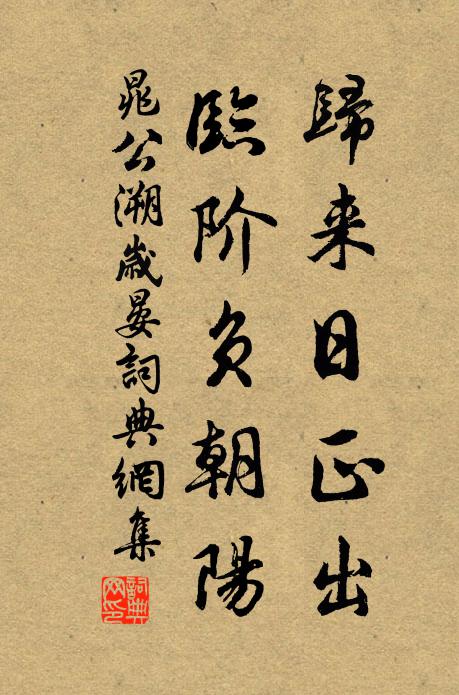 歸来日正出
臨阶负朝陽
晁公溯歲晏詞典網集
詞典網印